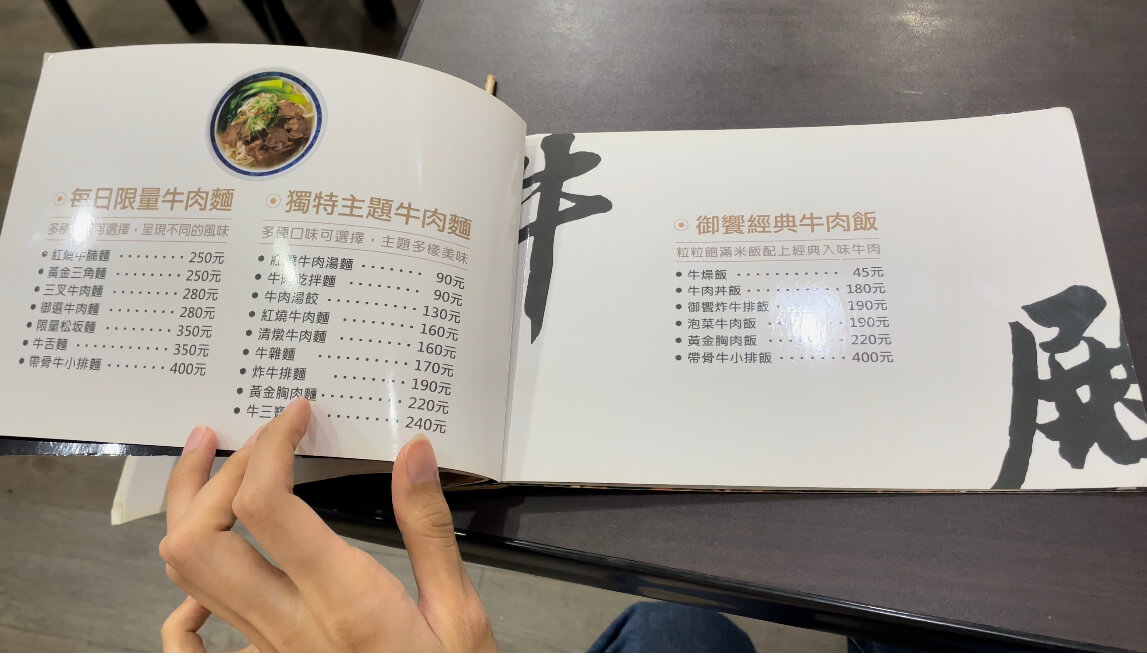 每日限量牛肉麵
可選擇，呈現不同的風味
紅燒牛腩麵 ········ 250元
黃金三角麵 ········ 250元
三叉牛肉麵 ········ 280元
御選牛肉麵 ········ 280元
限量松坂麵 ········ 350元
牛舌麵 ········ 350元
帶骨牛小排麵 ······· 400元
獨特主題牛肉麵
多種口味可選擇，主題多樣美味
牛肉湯麵 ······· 90元
乾拌麵 ········ 90元
牛肉湯餃 ········ 130元
紅燒牛肉麵 ········ 160元
清燉牛肉麵 ········ 160元
牛雜麵 ········ 170元
炸牛排麵 ········ 190元
黃金胸肉麵 ········ 220元
牛三 ········ 240元
牛
御饗經典牛肉飯
粒粒飽滿米飯配上經典入味牛肉
牛燥飯 ············ 45元
牛肉丼飯 ··········· 180元
御饗炸牛排飯 ········ 190元
泡菜牛肉飯 ·········· 190元
黃金胸肉飯 ·········· 220元
帶骨牛小排飯 ········· 400元